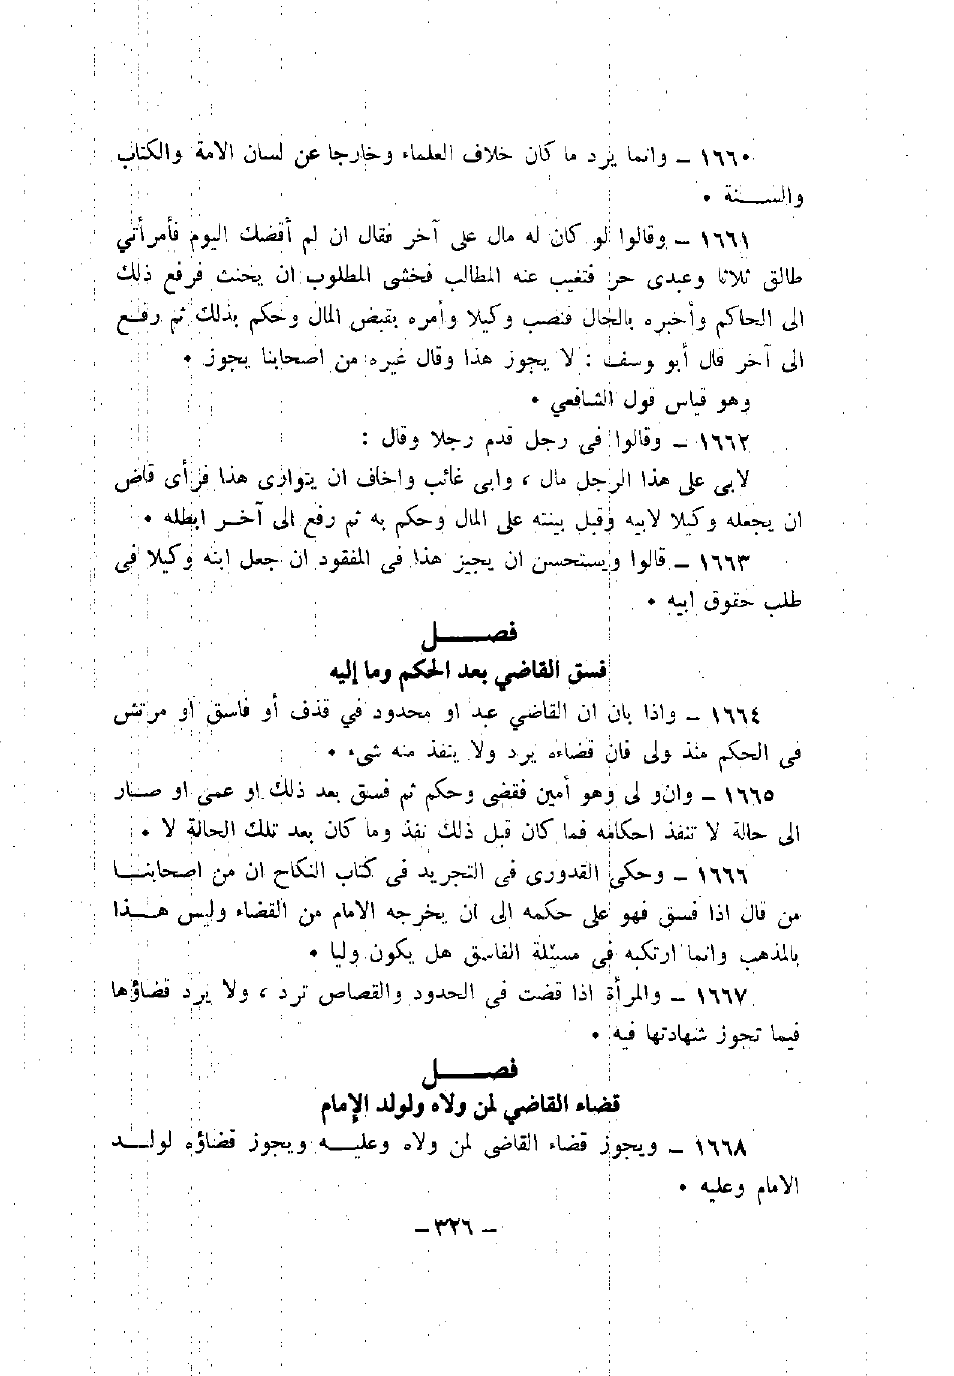 ١٦٦٠ ــ وانما يرد ما كان خلاف العلماء وخارجا عن لسان الامة والكتاب
والســـنة ٠
١٦٦١ ــ وقالوا لو كان له مال على آخر فقال ان لم أقضك اليوم فأمرأتي
طالق ثلاثا وعبدى حر فتغيب عنه المطالب فخشى المطلوب ان يحنث فرفع ذلك
الى الحاكم وأخبره بالحال فنصب وكيلا وأمره بقبض المال وحكم بذلك ثم رفـع
الى آخر قال أبو وسف : لا يجوز هذا وقال غيره من اصحابنا يجوز ٠
وهو قياس قول الشافعي ٠
١٦٦٢ ــ وقالوا فى رجل قدم رجلا وقال :
لابى على هذا الرجل مال ، وابى غائب واخاف ان يتوارى هذا فرأى قاض
ان يجعله وكيلا لابيه وقبل بينته على المال وحكم به ثم رفع الى آخـر ابطله ٠
١٦٦٣ ــ قالوا ويستحسن ان يجيز هذا فى المفقود ان جعل ابنه وكيلا فى
طلب حقوق ابيه ٠
فصـــــل
فسق القاضي بعد الحكم وما إليه
١٦٦٤ ــ واذا بان ان القاضي عبد او محدود في قذف أو فاسق أو مرتش
فى الحكم منذ ولى فان قضاءه يرد ولا ينفذ منه شىء ٠
١٦٦٥ ــ وان‌و لى وهو أمين فقضى وحكم ثم فسق بعد ذلك او عمى او صـار
الى حالة لا تنفذ احكامه فما كان قبل ذلك نفذ وما كان بعد تلك الحالة لا ٠
١٦٦٦ ــ وحكى القدورى فى التجريد فى كتاب النكاح ان من اصحابنــا
من قال اذا فسق فهو على حكمه الى ان يخرجه الامام من القضاء وليس هــذا
بالمذهب وانما ارتكبه فى مسئلة الفاسق هل يكون وليا ٠
١٦٦٧ ــ والمرأة اذا قضت فى الحدود والقصاص ترد ، ولا يرد قضاؤها
فيما تجوز شهادتها فيه ٠
فصـــــل
قضاء القاضي لمن ولاه ولولد الإمام
١٦٦٨ ــ ويجوز قضاء القاضى لمن ولاه وعليــه ويجوز قضاؤه لولــد
الامام وعليه ٠
ــ ٣٢٦ ــ